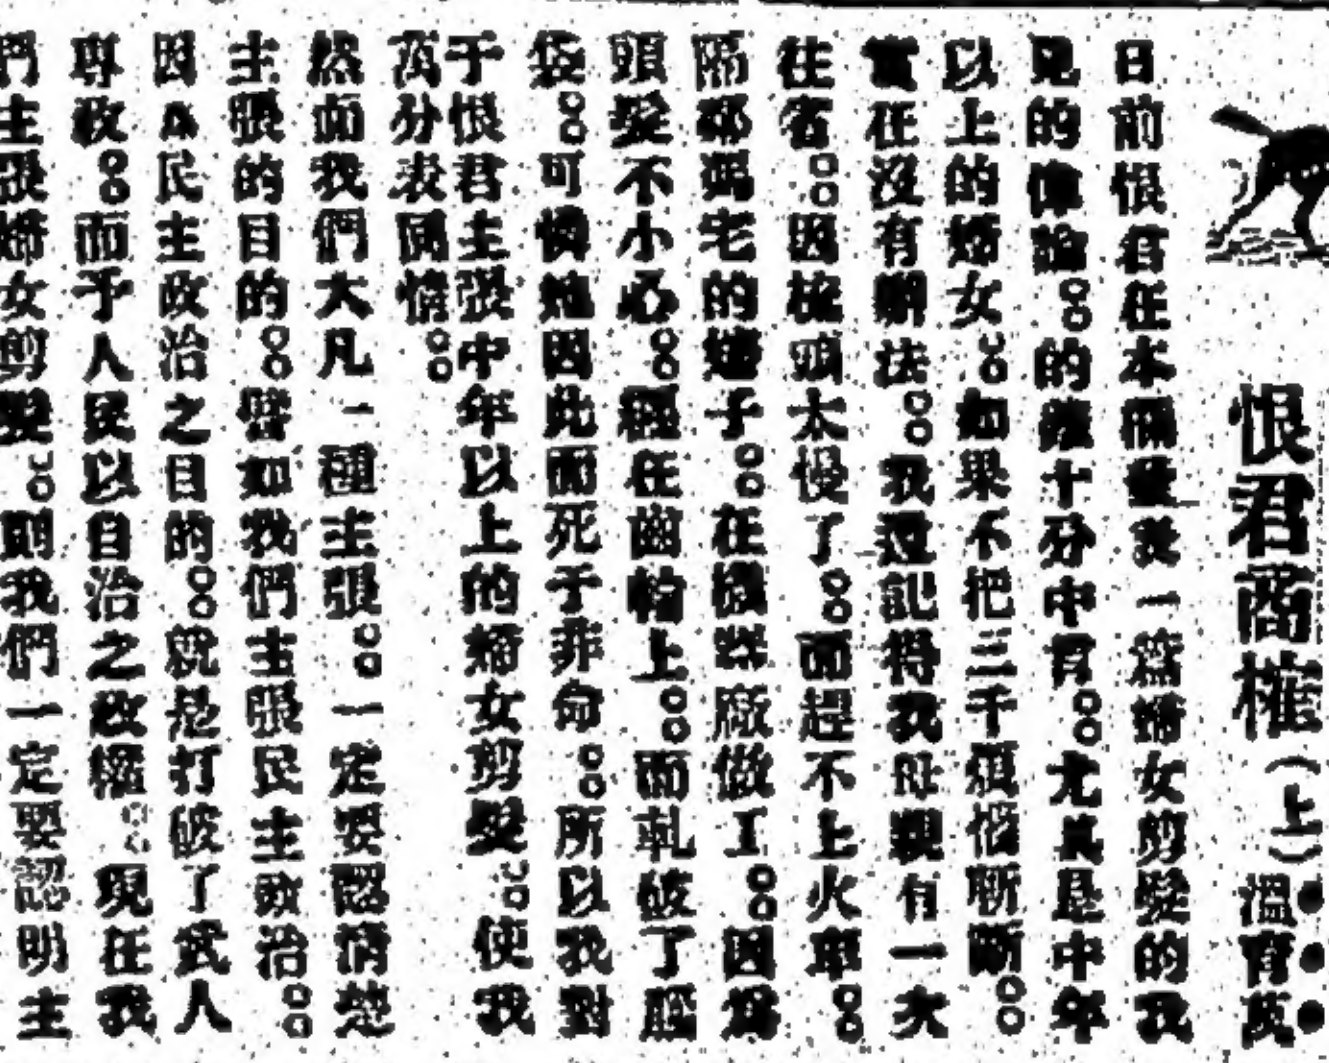 恨君商榷（上）溫育英
日前恨君在本欄發表一篇婦女剪髮的我
見的偉論。的確十分中肯。尤其是中年
以上的婦女。如果不把三千煩惱斬斷。
實在沒有辦法。我還記得我母親有一次
往省。因梳頭太慢了。而趕不上火車。
隔鄰馮宅的嫂子。在機器廠做工。因爲
頭髮不小心。纏在齒輪上。而軋破了腦
袋。可憐她因此而死于非命。所以我對
于恨君主張中年以上的婦女剪髮。使我
萬分表同情。
然而我們大凡一種主張。一定要認清楚
主張的目的。譬如我們主張民主政治。
因爲民主政治之目的。就是打破了武人
專政。而予人民以自治之政權。現在我
們主張婦女剪髮。則我們一定要認明主